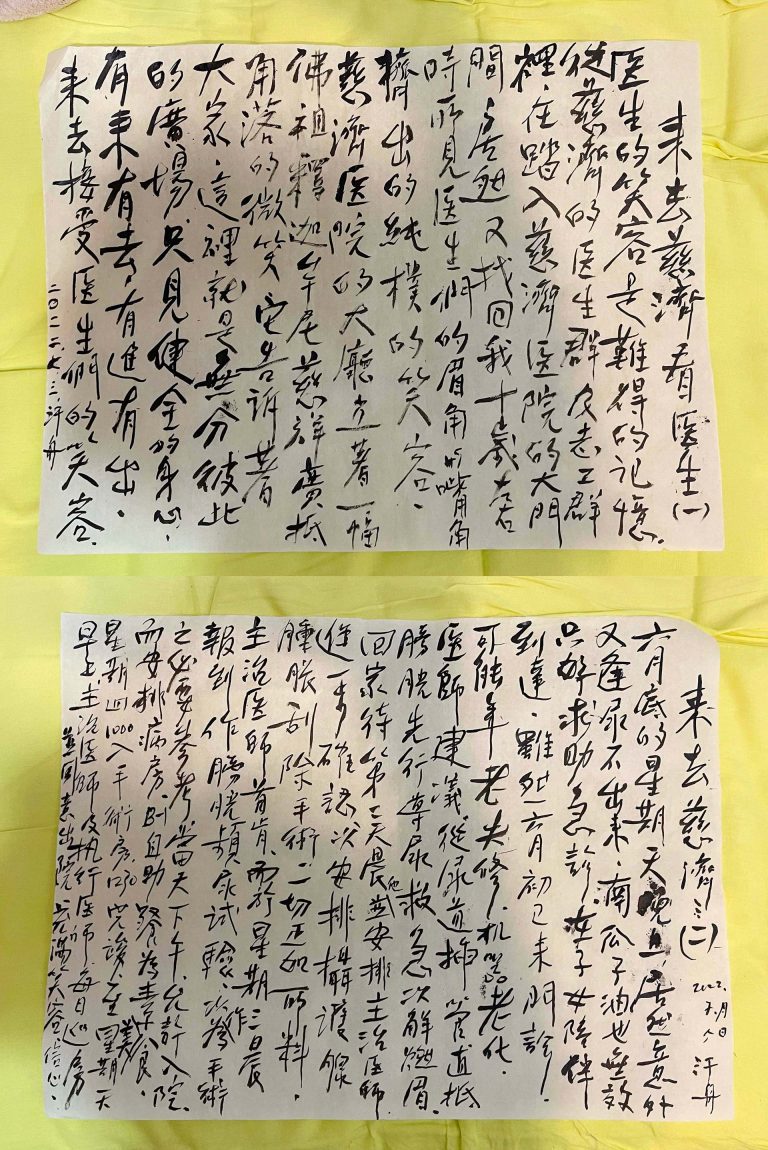 来去慈濟看医生(一)
医生的笑容是難得的记憶.
從慈濟的医生群及志工群
裡.在踏入慈濟医院的大門
間.居然又找回我十七歲若
時.所見医生們的眉角的嘴角
擠出的純樸的笑容.
慈濟医院的大廳立着一幅
佛祖釋迦牟尼慈祥
角落的微笑.它告诉著
大家.這裡就是無分彼此
的廣場.只見健全的身心.
有来有去.有進有出.
来去接受医生們的笑容.
二〇二二.七.三.汗舟
来去慈濟(二)
2022.
汗舟
六月底的星期天晚上居然意外
又逢尿不出来.南瓜子油也無效
只好求助急診.在子女陪伴
到達.雖然六月初已来門診.
可能年老失修.机器老化.
医師建議從尿道插管直抵
膀胱先行導尿救急.次解燃眉.
回家待第二天晨他並安排主治医師
進一步確認.次安排攝護腺
腫脹刮除手術.一切正如所料.
主治医師首肯.而於星期三日晨
報到作膀胱頻尿试驗.次為手術
之必要参考.當天下午.允許入院.
而安排病房.則自助餐為素食.
星期四1000入手術房.1250完竣.至星期天
早上主治医師及执行医師的每日巡房
並同意出院.充滿笑容信心.